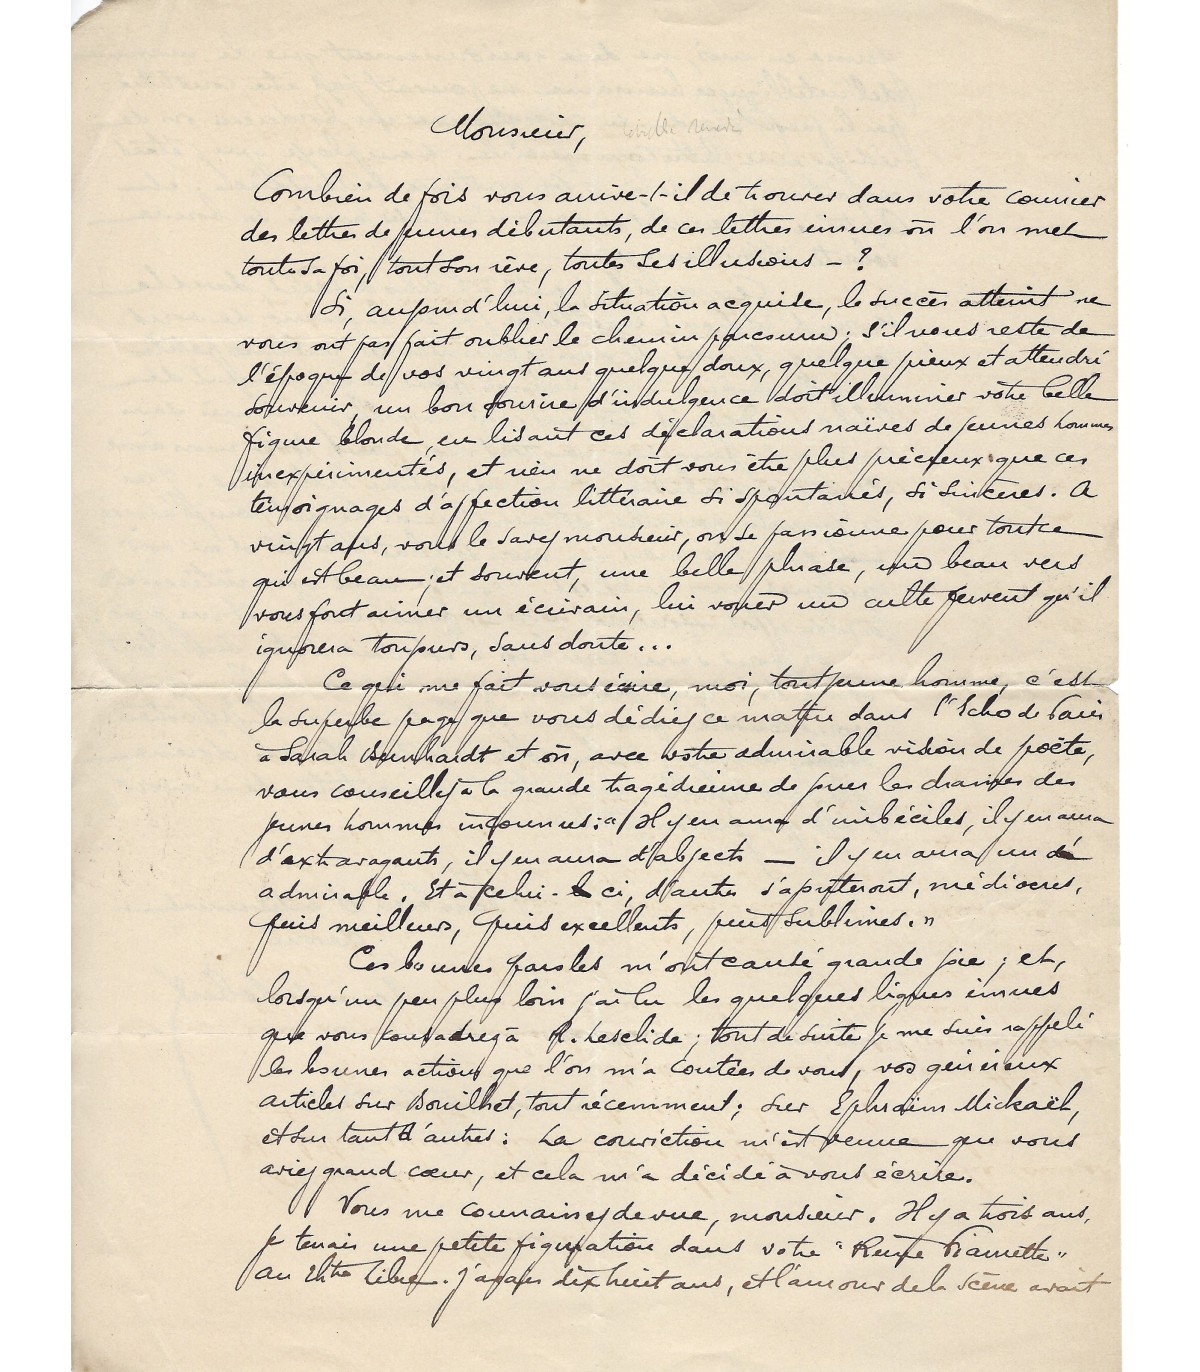 Monsieur,
Combien de fois vous arrive-t-il de trouver dans votre courrier
des lettres de jeunes débutants, de ces lettres émues où l'on met
toute sa foi, tout son rêve, toutes ses illusions – ?
Si, aujourd'hui, la situation acquise, le succès atteint ne
vous ont pas fait oublier le chemin parcouru ; s'il vous reste de
l'époque de vos vingt ans quelque doux, quelque pieux et attendri
souvenir, un bon sourire d'indulgence doit illuminer votre belle
figure blonde, en lisant ces déclarations naïves de jeunes hommes
inexpérimentés, et rien ne doit vous être plus précieux que ces
témoignages d'affection littéraire si spontanés, si sincères. A
vingt ans, vous le savez monsieur, on se passionne pour tout ce
qui est beau ; et souvent, une belle phrase, un beau vers
vous font aimer un écrivain, lui vouer un culte fervent qu'il
ignorera toujours, sans doute...
Ce qui me fait vous écrire, moi, tout jeune homme, c'est
la superbe page que vous dédiez ce matin dans l'Echo de Paris
à Sarah Bernhardt et où, avec votre admirable vision de poète,
vous conseillez à la grande tragédienne de jouer les drames des
jeunes hommes inconnus : « Il y en aura d'imbéciles, il y en aura
d'extravagants, il y en aura d'abjects — il y en aura un
admirable. Et à celui-ci, d'autres s'ajouteront, médiocres,
puis meilleurs, puis excellents, puis sublimes. »
Ces bonnes paroles m'ont causé grande joie ; et,
lorsqu'un peu plus loin j'ai lu les quelques lignes émues
que vous consacrez à R. Lesclide ; tout de suite je me suis rappelé
les bonnes actions que l'on m'a contées de vous, vos généreux
articles sur Bouilhet, tout récemment ; sur Ephraïm Mickaël,
et sur tant d'autres : La conviction m'est venue que vous
aviez grand cœur, et cela m'a décidé à vous écrire.
Vous me connaissez de vue, monsieur. Il y a trois ans,
je tenais une petite figuration dans votre "Reine Fiamette"
au Thtre Libre. J'avais dix huit ans, et l'amour de la scène avait